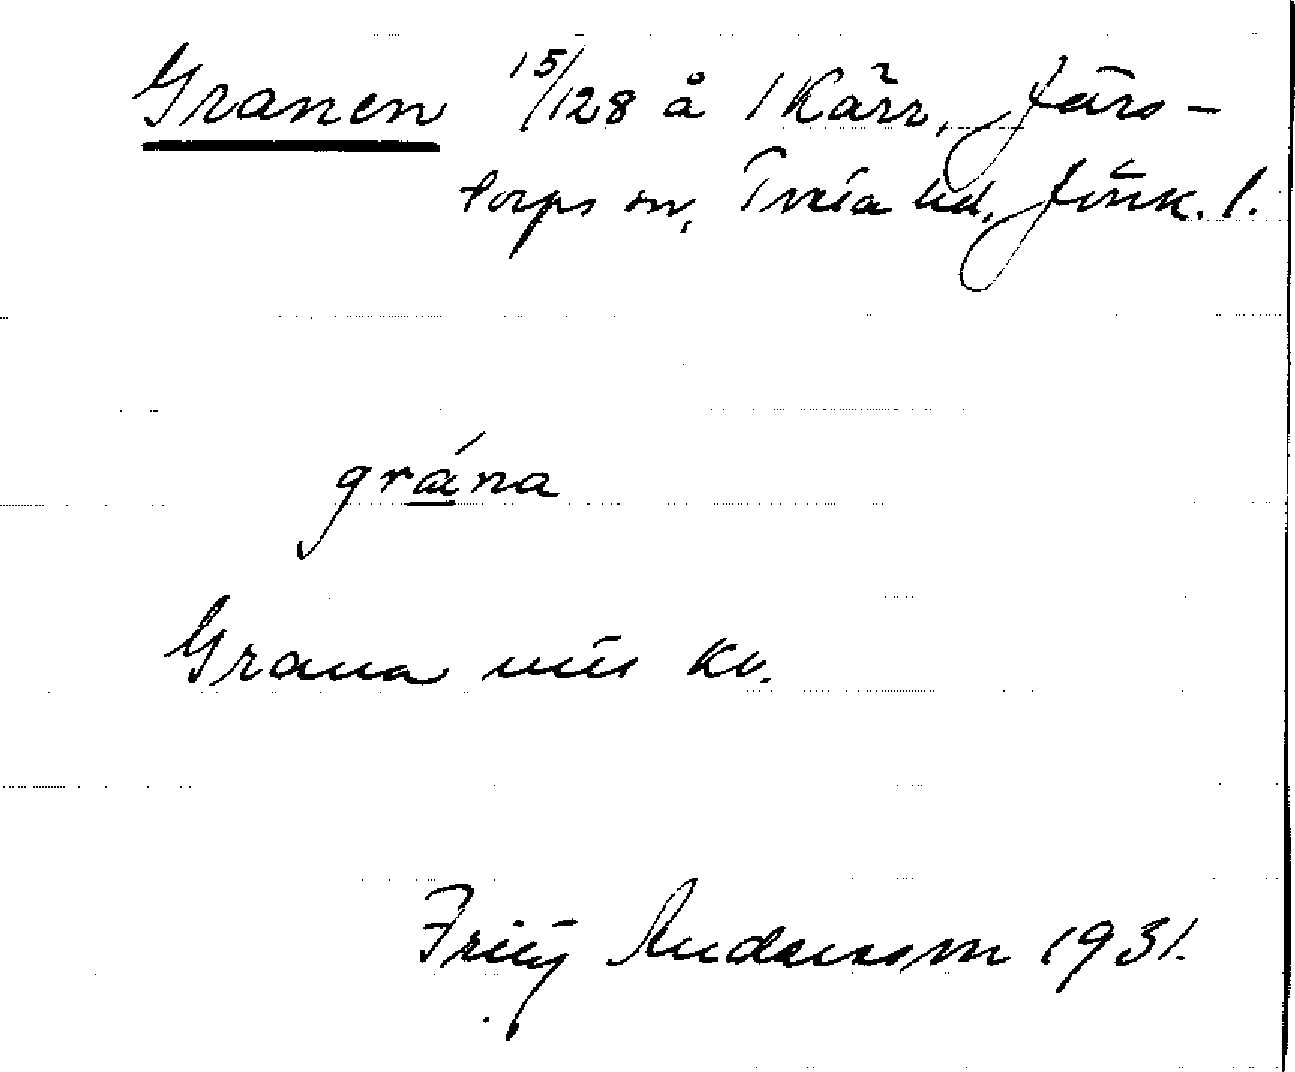 Granen 15/128 å 1 Kärr, Järs-
torps sn, Tveta hd, Jönk. l.
grána
Grana uris kv.
Fritz Andersson 1931.